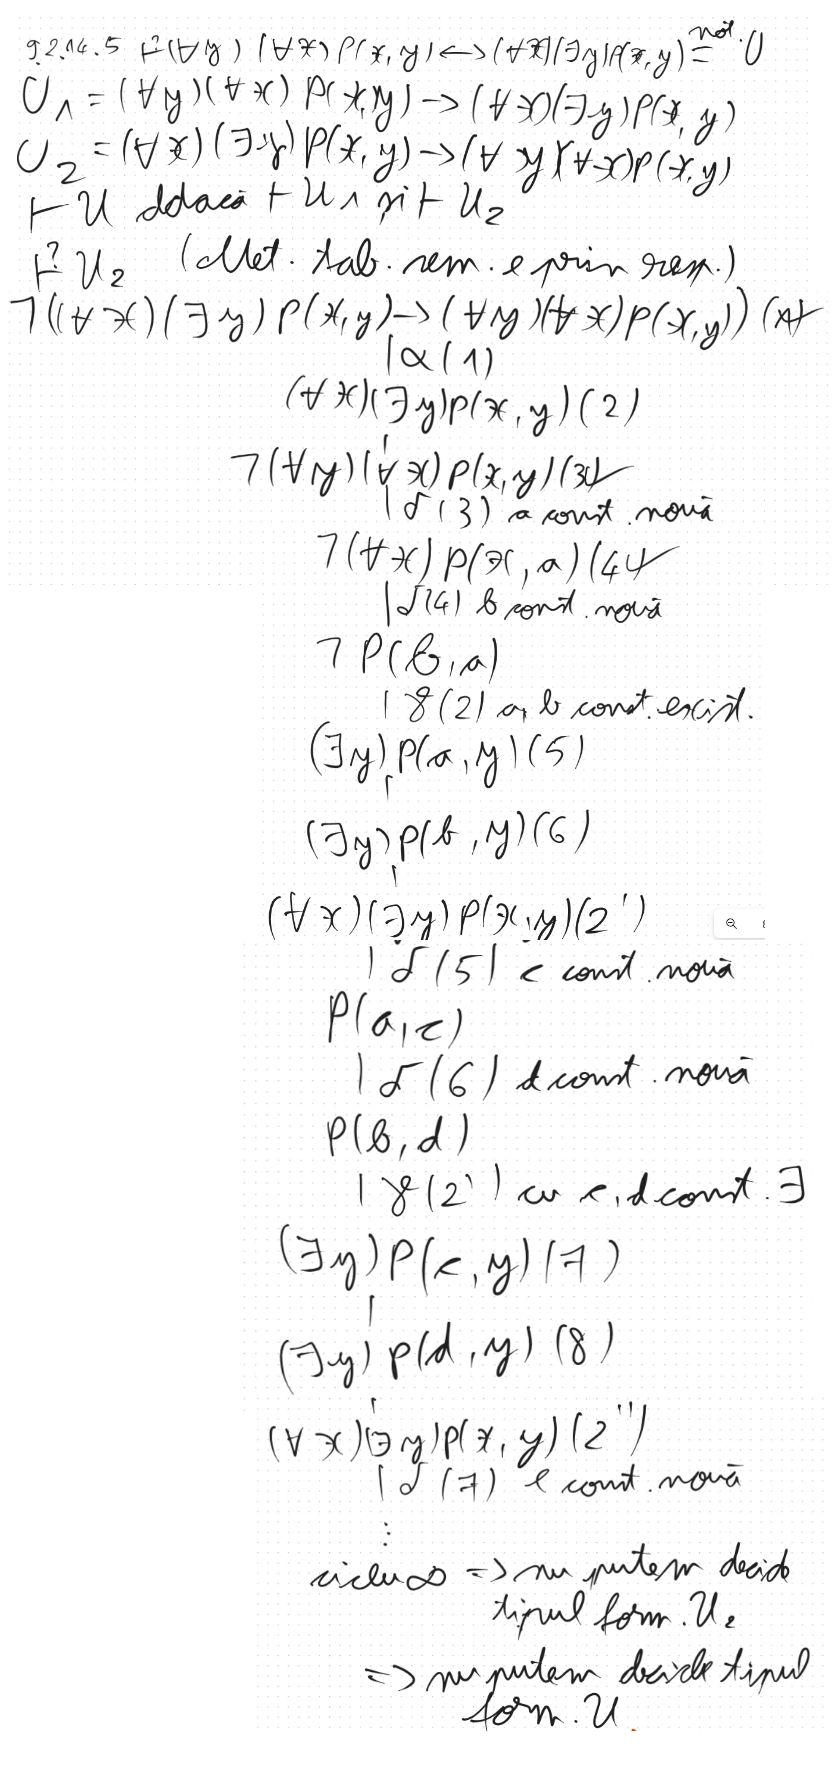 9.2.14.5 ⊢? (∀y)(∀x)P(x,y)<->(∀x)(∃y)P(x,y) = not. U
U1 = (∀y)(∀x) P(x,y) -> (∀x)(∃y)P(x,y)
U2 = (∀x)(∃y)P(x,y) -> (∀y)(∀x)P(x,y)
⊢ U ddacă ⊢ U1 și ⊢ U2
⊢? U2 (Met. tab. sem. e prin resp.)
¬((∀x)(∃y) P(x,y) -> (∀y)(∀x)P(x,y)) (1)✓
| α(1)
(∀x)(∃y)P(x,y) (2)
|
¬(∀y)(∀x) P(x,y) (3)✓
| δ(3) a const. nouă
¬(∀x) P(x,a) (4)✓
| δ(4) b const. nouă
¬ P(b,a)
| γ(2) a, b const. exist.
(∃y) P(a,y) (5)
|
(∃y) P(b,y) (6)
|
(∀x)(∃y) P(x,y) (2')
| δ(5) c const. nouă
P(a,c)
| δ(6) d const. nouă
P(b,d)
| γ(2') cu c, d const. ∃
(∃y) P(c,y) (7)
|
(∃y) P(d,y) (8)
|
(∀x)(∃y)P(x,y) (2'')
| δ(7) e const. nouă
⋮
ciclu ∞ => nu putem decide
tipul form. U2
=> nu putem decide tipul
form. U.